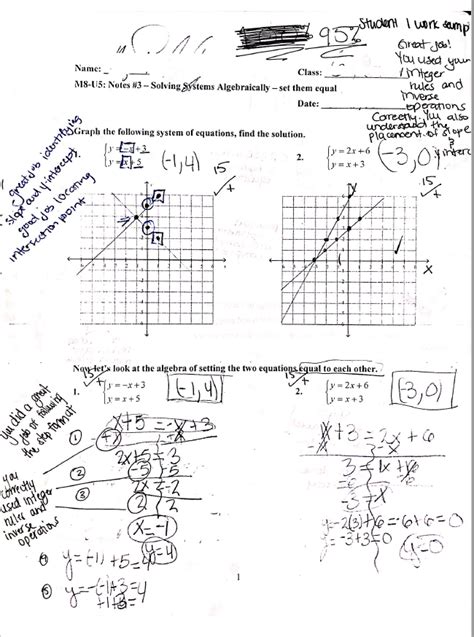 95%
Student 1 work
Great job!
You used your
integer
rules and
inverse
operations
Correctly. You also
understand the
placement of slope
Name:
Class:
M8-U5: Notes #3 – Solving Systems Algebraically – set them equal
Date:
Graph the following system of equations, find the solution.
y = -x + 3
y = x + 5
(-1,4)
15
+
2.
y = 2x + 6
y = x + 3
(-3,0)
15
+
great job identifying
slope and y intercept.
good job locating
intersection point
y
x
Now let's look at the algebra of setting the two equations equal to each other.
15
+
1.
y = -x + 3
y = x + 5
(-1,4)
15
+
2.
y = 2x + 6
y = x + 3
(-3,0)
you did a great
job of following
the step format
you
correctly
used integer
rules and
inverse
operations
①
x+5 = -x+3
+x
②
2x+5 = 3
-5 -5
③
2x = -2
2 2
x = -1
④
y=(-1)+5=4
y=4
⑤
y=-(-1)+3=4
+1+3=
x+3 = 2x+6
-x
3 = 1x+6
-6
-3 = x
y=2(-3)+6=-6+6=0
y=-3+3=0
y=0
1